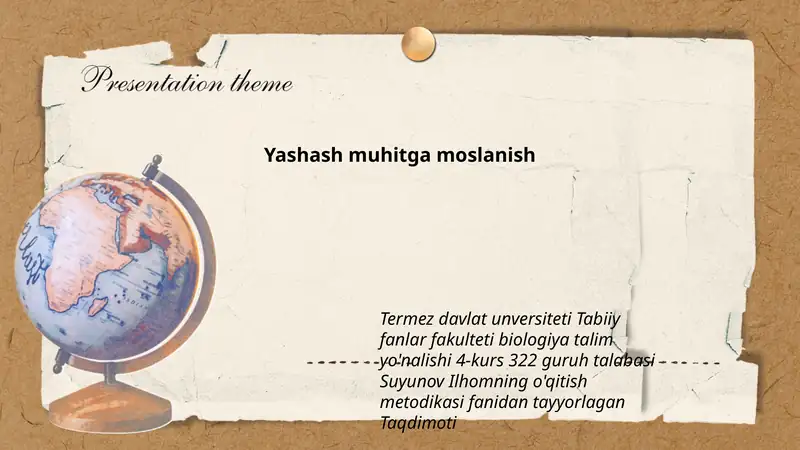 Presentation theme
Yashash muhitga moslanish
Termez davlat unversiteti Tabiiy
fanlar fakulteti biologiya talim
yo'nalishi 4-kurs 322 guruh talabasi
Suyunov Ilhomning o'qitish
metodikasi fanidan tayyorlagan
Taqdimoti